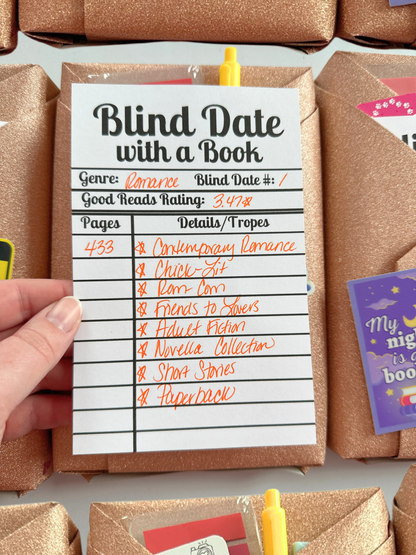 Blind Date
with a Book
Genre: Romance Blind Date #: 1
Good Reads Rating: 3.47☆
Pages Details/Tropes
433 ☆ Contemporary Romance
☆ Chick-Lit
☆ Rom Com
☆ Friends to Lovers
☆ Adult Fiction
☆ Novella Collection
☆ Short Stories
☆ Paperback
My